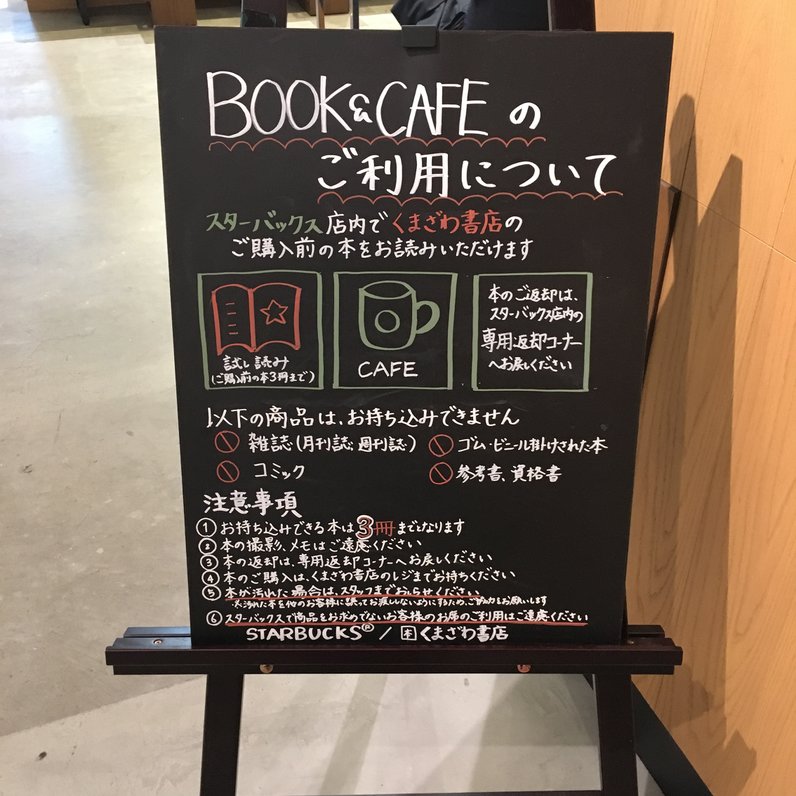 BOOK&CAFE の
ご利用について
スターバックス店内でくまざわ書店の
ご購入前の本をお読みいただけます
試し読み
(ご購入前の本3冊まで)
CAFE
本のご返却は、
スターバックス店内の
専用返却コーナー
へお戻しください
以下の商品は、お持ち込みできません
雑誌(月刊誌、週刊誌)
ゴム・ビニール掛けされた本
コミック
参考書、資格書
注意事項
① お持ち込みできる本は3冊までになります
② 本の撮影、メモはご遠慮ください
③ 本の返却は、専用返却コーナーへお戻しください
④ 本のご購入は、くまざわ書店のレジまでお持ちください
⑤ 本が汚れた場合は、スタッフまでお知らせください
※汚れた本を他のお客様に誤ってお渡ししないようにするため、ご協力をお願いします
⑥ スターバックスで商品をお求めでないお客様のお席のご利用はご遠慮ください
STARBUCKS® / 本 くまざわ書店